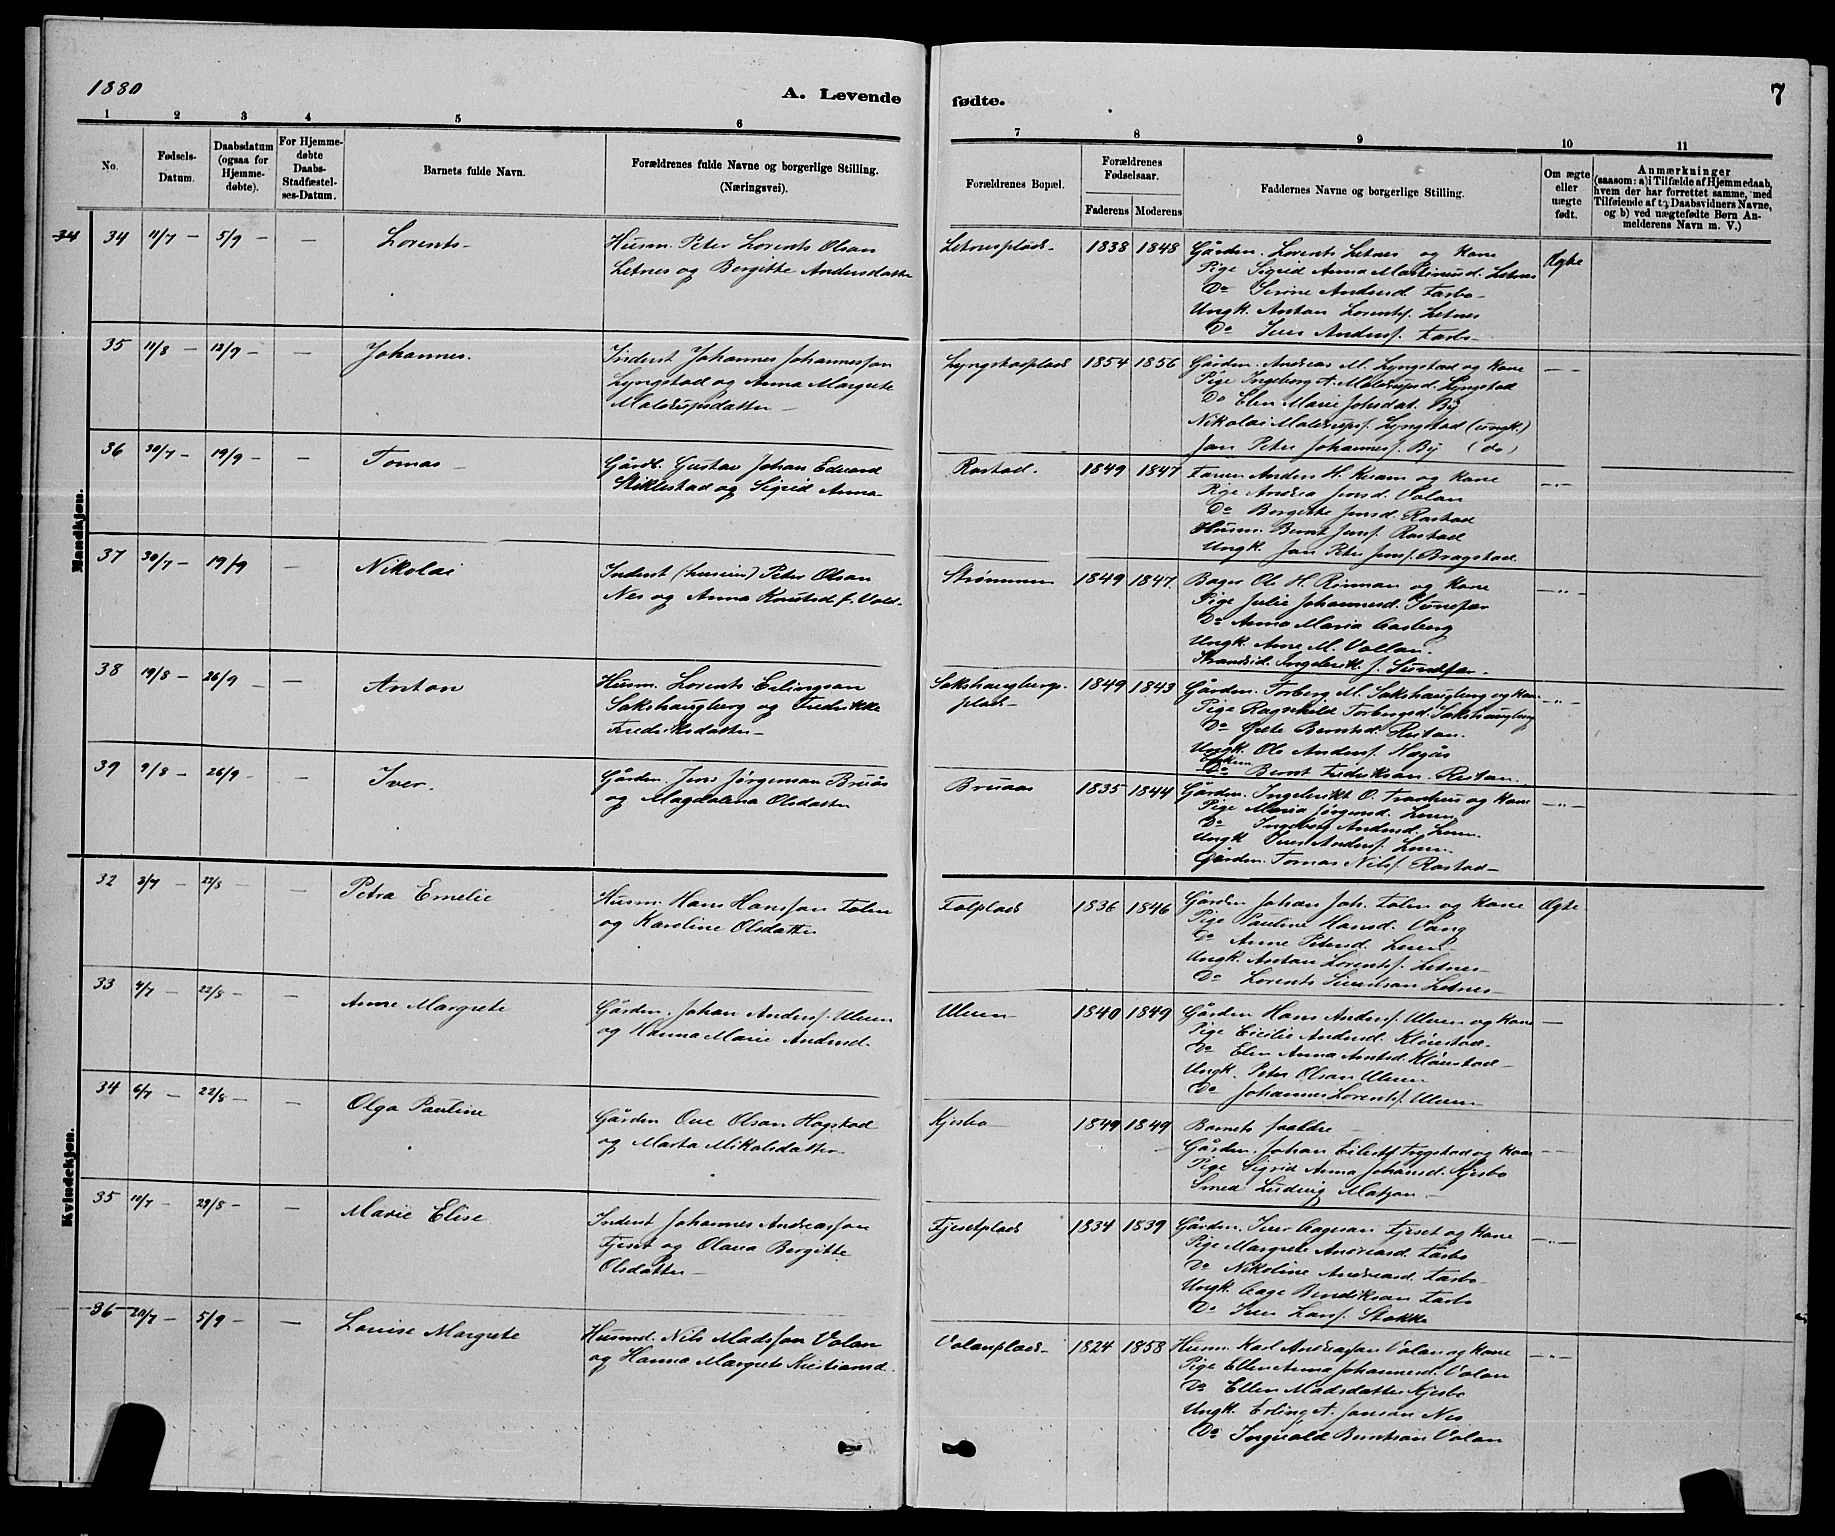 1880
A. Levende
fødte.
7
1 2 3 4 5 6 7 8 9 10 11
No.
Fødsels-Datum.
Daabsdatum (ogsaa for Hjemmedøbte).
For Hjemmedøbte Daabs-Stadfæstelses-Datum.
Barnets fulde Navn.
Forældrenes fulde Navne og borgerlige Stilling.
(Næringsvei).
Forældrenes Bopæl.
Forældrenes Fødselsaar.
Faderens Moderens
Faddernes Navne og borgerlige Stilling.
Om ægte eller uægte født.
Anmærkninger
(saasom: a) i Tilfælde af Hjemmedaab, hvem der har forrettet samme, med Tilføiende af to Daabsvidners Navne, og b) ved uægtefødte Børn Anmelderens Navn m. V.)
Mandkjøn.
34 34 11/7 — 5/9 — — Lorents —
Husm. Peter Lorents Olsen
Letnes og Bergitte Andersdatter
Letnesplads — 1838 1848
Gårdm. Lorents Letnes og Kone
Pige Sigrid Anna Martinusd. Letnes
Do Serine Andersd. Farbo —
Ungk. Anton Lorentsf. Letnes
Do Iver Andersf. Farbo —
Ægte
35 11/8 — 12/9 — — Johannes.
Inderst Johannes Johannesson
Lyngstad og Anna Margrete
Lyngstadplads 1854 1856
Gårdm. Andreas M. Lyngstad og Kone
Pige Ingeborg A. Lyngstad
Do Elen Marie Johsdat. By
Nikolai Lyngstad (ungk.)
Jon Peter Johannesf. By (do)
— —
36 30/7 — 19/9 — — Tomas —
Gårdb. Gustav Johan Edvard
Stiklestad og Sigrid Anna
Rostad. 1849 1847
Anders H. Kvam og Kone
Pige Andrea Jensd. Volan
Do Bergitte Jensd. Rostad
Husm. Bernt Jensf. Rostad
Ungk. Jon Peter Jensf. Bragstad
— " —
37 30/7 — 19/9 — Nikolai
Inderst Peter Olsen
Nes og Anna Knutsd. f. Vold —
Strømmen 1849 1847.
Bager Ole H. Rinnan og Kone
Pige Julie Johannesd. Sundfær
Do Anna Maria Aasberg
Ungk. Arne M. Vollan.
Strandsid. Ingebrikt J. Sundfær.
— " —
38 19/8 — 26/9 — — Anton
Husm. Lorents Erlingsen
Sakshaugberg og Fredrikke
Fredriksdatter —
Sakshaugbergsplads — 1849 1843
Gårdm. Torberg M. Sakshaugberg og Kone
Pige Ragnhild Torbergsd. Sakshaugberg
Do Grete Berntsd. Reitan.
Ungk. Ole Andersf. Hagås
Do Bernt Fredriksen Reitan.
— " —
39 9/8 — 26/9 — — Iver.
Gårdm. Jens Jørgensen Bruås
og Magdalena Olsdatter
Bruaas 1835 1844
Gårdm. Ingebrikt O. og Kone
Pige Maria Jørgensd. Leren
Do Ingeborg Andersd. Leren.
Ungk. Iver Andersf. Leren.
Gårdm. Tomas Nilsf. Rostad —
— " —
Kvindekjøn.
32 2/7 — 22/8 — Petra Emelie
Husm. Hans Hansson Folen
og Karoline Olsdatter
Folplads 1836 1846
Gårdm. Johan Joh. Folen og Kone
Pige Pauline Hansd. Vang
Do Anne Petersd. Leren —
Ungk. Anton Lorentsf. Letnes —
Do Lorents Sivertsen Letnes —
Ægte
33 4/7 — 22/8 — — Anne Margrete
Gårdm. Johan Andersf. Ulven
og Hanna Marie Andersd.
Ulven — 1840 1849
Gårdm. Hans Andersf. Ulven og Kone
Pige Cicilie Andersd. Kløvstad.
Do Elen Anna Arntsd. Kløvstad —
Ungk. Peter Olsen Ulven
Do Johannes Lorentsf. Ulven
—
34 6/7 — 22/8 — — Olga Pauline
Gårdm. Ove Olsen Hogstad
og Marta Mikalsdatter
Kjesbo 1849 1849
Barnets forældre —
Gårdm. Johan Tregstad og Kone
Pige Sigrid Anna Johansd. Kjesbo
Smed Ludvig Matson —
— —
35 12/7 — 29/8 — — Marie Elise
Inderst Johannes Andreasson
Fjeset og Olava Bergitte
Olsdatter —
Fjesetplads 1834 1839
Gårdm. Iver Aagesen Fjeset og Kone
Pige Margrete Andreasd. Farbo
Do Nikoline Andreasd. Farbo —
Ungk. Aage Bendiksen Farbo
Do Iver Larsf. Stokke
— " —
36 20/7 — 5/9 — — Louise Margrete
Husmd. Nils Madsson Volan
og Hanna Margrete Kristiansd.
Volanplads — 1824 1858
Husm. Karl Andreasson Volan og Kone
Pige Ellen Anna Johannesd. Volan
Do Ellen Madsdatter Kjesbo
Ungk. Erling A. Jonson Nes
Do Ingvald Berntsen Volan
— " —